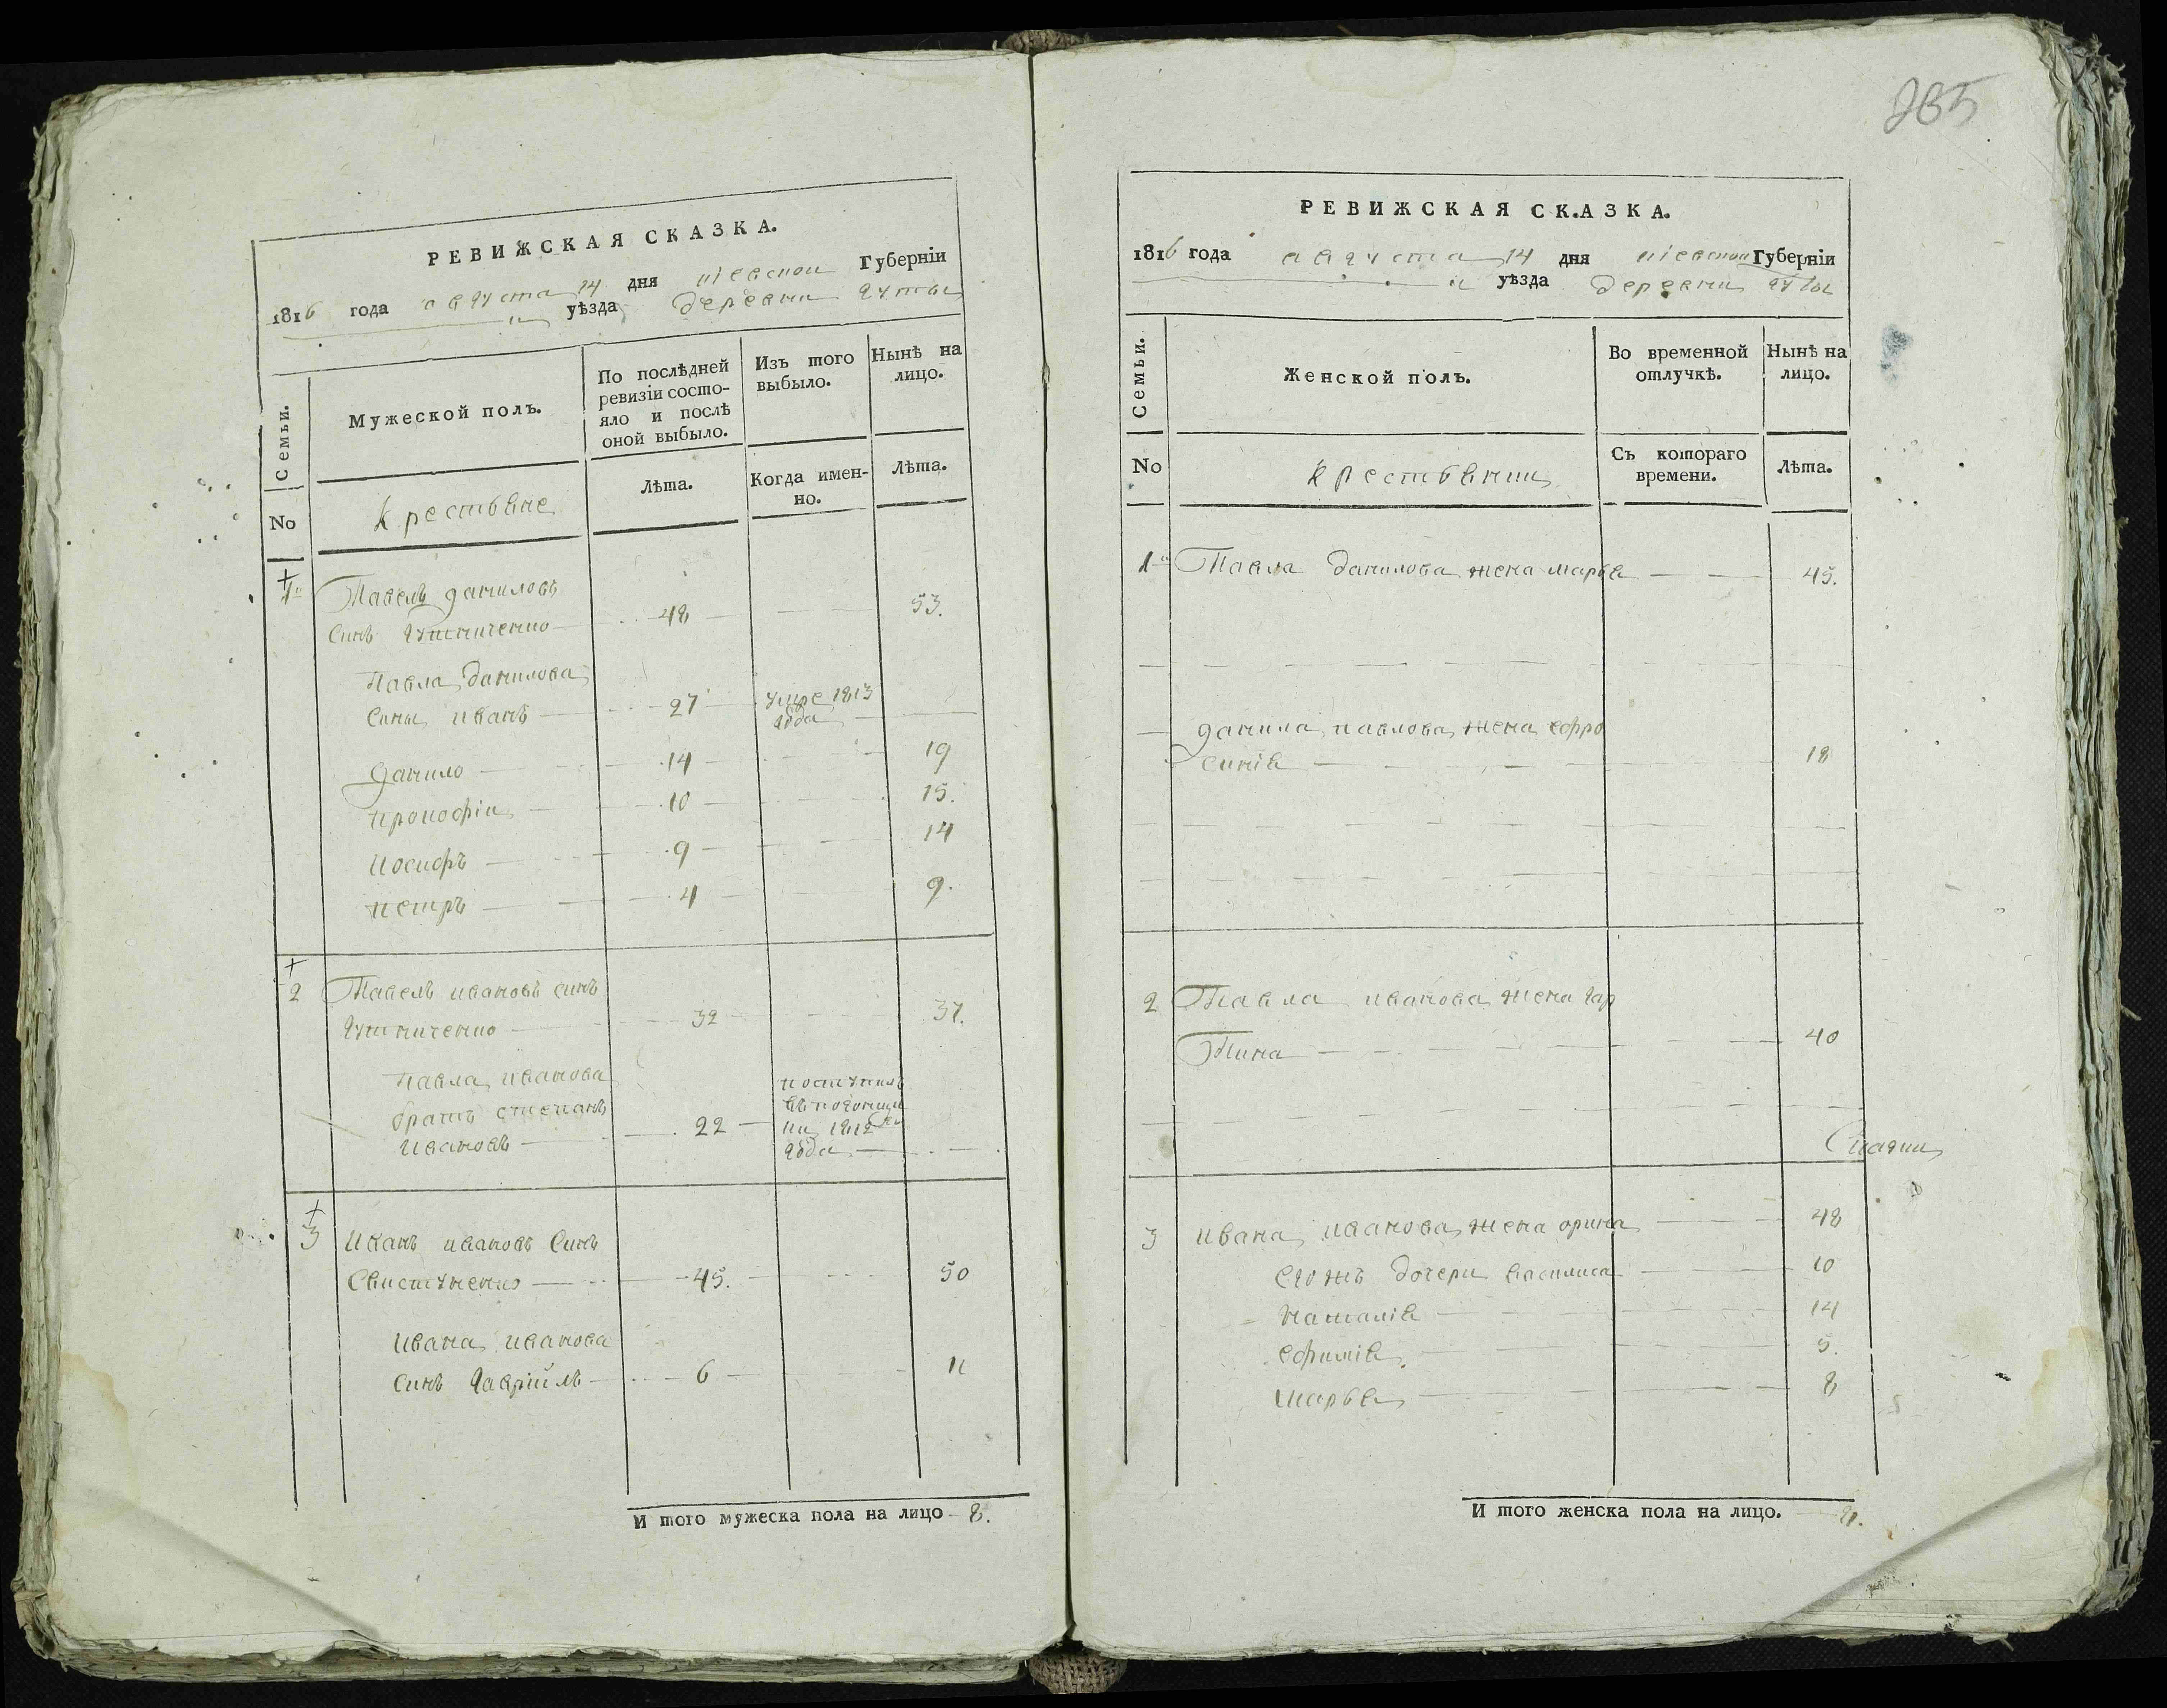 265
РЕВИЖСКАЯ СКАЗКА.
1816 года августа 14 дня кіевской Губерніи
уѣзда деревни гуты
Семьи.
Мужеской полъ.
По послѣдней ревизіи состо-
яло и послѣ
оной выбыло.
Изъ того
выбыло.
Нынѣ на
лицо.
No
Крестьяне
Лѣта.
Когда имен-
но.
Лѣта.
1й Павелъ даниловъ
синъ гутниченко 48 53.
Павла данилова
сины иванъ 27 умре 1813
года
данило 14 19
прокофій 10 15.
иосифъ 9 14
петръ 4 9.
2 Павелъ ивановъ синъ
гутниченко 32 37.
Павла иванова
братъ степанъ
ивановъ 22
поступилъ
1812
года
3 Иванъ ивановъ синъ
Свистуненко 45. 50
Ивана иванова
синъ гавріилъ 6 11
И того мужеска пола на лицо 8.
РЕВИЖСКАЯ СКАЗКА.
1816 года августа 14 дня кіевской Губерніи
уѣзда деревни гуты
Семьи.
Женской полъ.
Во временной
отлучкѣ.
Нынѣ на
лицо.
No
Крестьянки
Съ котораго
времени.
Лѣта.
1й Павла данилова жена марья 45.
данила павлова жена ефро
синія 18
2 Павла иванова жена гар
пина 40
3 ивана иванова жена орина 48
его жъ дочери василиса 10
наталія 14
ефимія 5.
марья 8
И того женска пола на лицо.